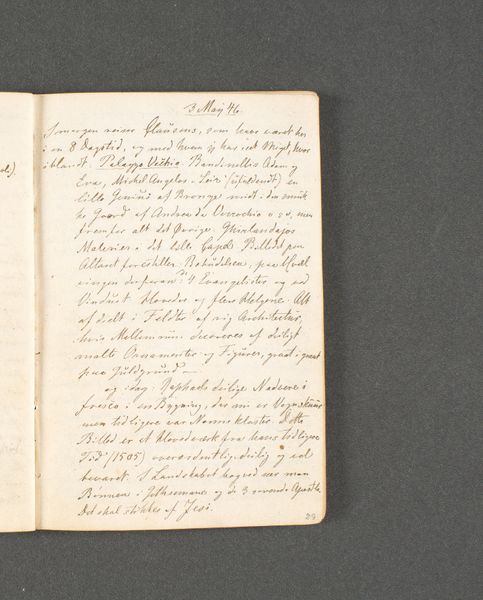 3 Maij 46.
I morgen reiser Clausens, som have været her
i en 8 Dagstid, og med hvem jeg har seet Meget, hvor
iblandt Palazzo Vecchio. Bandinellis Adam og
Eva, Michel Angelos (ufuldendt) en
lille Genius af Bronze midt i den smuk
ke Gaard af Andrea da Verrochio o s v, men
fremfor alt det Øvrige. Ghirlandajos
Malerier i det lille Capel. Billedet paa
Altaret forestiller Bebudelsen, paa Hvæl
vingen derforan de 4 Evangelister og ved
Vinduet Hoveder og flere Helgene. Alt
afdeelt i Felter af rig Architectur,
hvis Mellemrum decoreres af deiligt
malte Ornamenter og Figurer, graat i graat
paa Guldgrund.
og idag: Raphaels deilige Nadvere i
fresco i en Bygning, der nu er Vognskuur
men tidligere var Nonnekloster. Dette
Billed er et Hovedværk fra hans tidligere
Tid (1505) overordentlig deilig og vel
bevaret. I Landskabet bagved seer man
Bønnen i Gethsemane og de 3 sovende Apostle.
Det skal stikkes af Jesi.
29